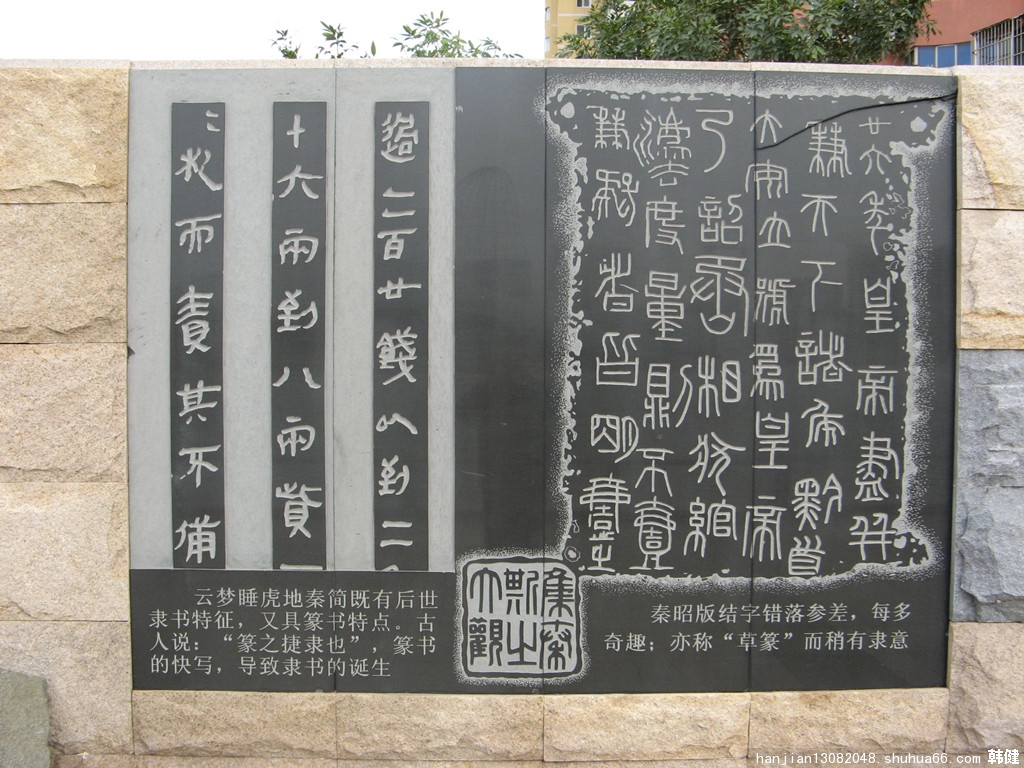 廿六年皇帝盡并
兼天下諸矦黔首
大安立號爲皇帝
乃詔丞相狀綰
灋度量則不壹
歉疑者皆明壹之
過二百廿錢以到二
十六兩到八兩貲一
而責其不備
集秦
斯之
大觀
秦昭版结字错落参差，每多
奇趣；亦称“草篆”而稍有隶意
云梦睡虎地秦简既有后世
隶书特征，又具篆书特点。古
人说：“篆之捷隶也”，篆书
的快写，导致隶书的诞生
hanjian13082048.shuhua66.com 韩健